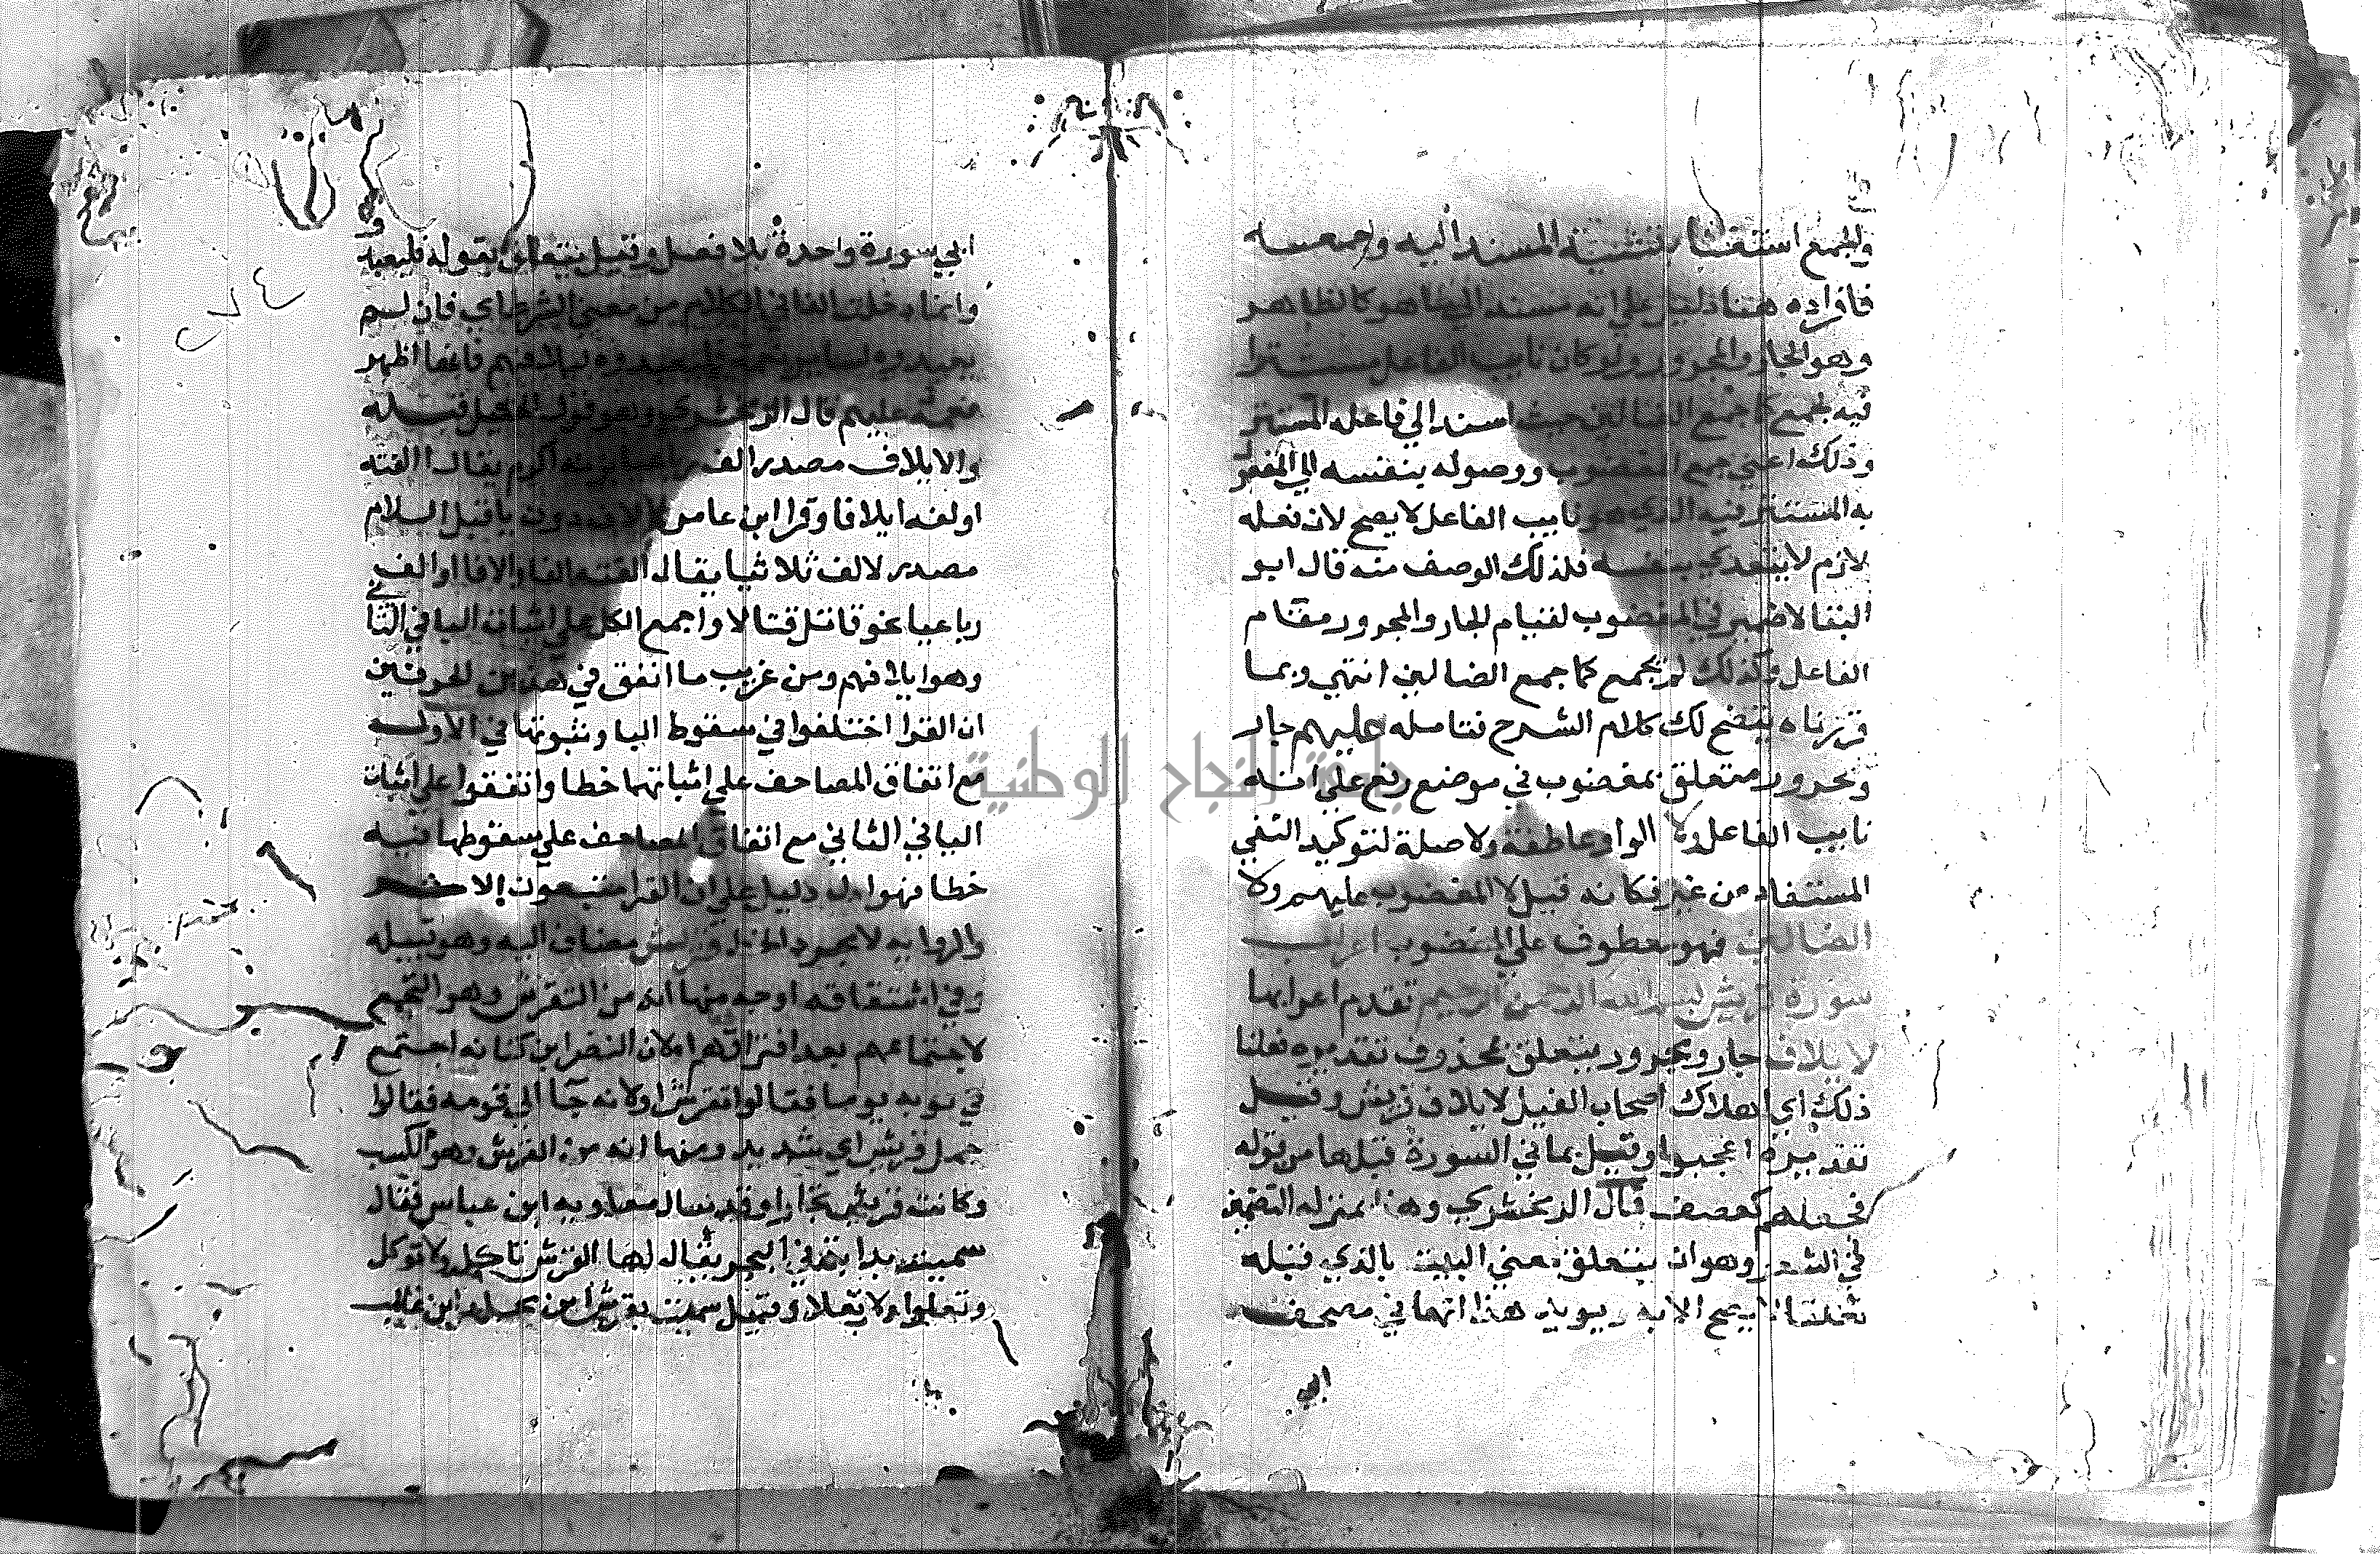 والجمع استغنا بتثنية المسند اليه وجمعه
فافراده هنا دليل على انه مسند الي ما هو كالظاهر
وهو الجار والمجرور ولو كان نايب الفاعل مستترا
فيه لجمع كما جمع الضالين حيث اسند الي فاعله المستتر
وذلك اعني جمع المغضوب ووصوله بنفسه الي المفعول
به المستتر فيه الذي هو نايب الفاعل لا يصح لان فعله
لازم لا يتعدي بنفسه فلذلك الوصف منه قال ابو
البقا لا ضمير في المغضوب لقيام الجار والمجرور مقام
الفاعل وكذلك لم يجمع كما جمع الضالين انتهي وبما
قررناه يتضح لك كلام الشرح فتامله عليهم جار
ومجرور متعلق بمغضوب في موضع رفع علي انه
نايب الفاعل ولا الواو عاطفة ولا صلة لتوكيد النفي
المستفاد من غير فكانه قيل لا المغضوب عليهم ولا
الضالين فهو معطوف علي المغضوب اعراب
سورة قريش بسم الله الرحمن الرحيم تقدم اعرابها
لايلاف جار ومجرور يتعلق بمحذوف تقديره فعلنا
ذلك اي اهلاك اصحاب الفيل لايلاف قريش وقيل
تقديره اعجبوا وقيل بما في السورة قبلها من قوله
فجعلهم كعصف قال الزمخشري وهذا بمنزله التضمين
في الشعر وهو ان يتعلق معني البيت بالذي قبله
تعلقا لا يصح الا به ويويد هذا انهما في مصحف
ابي
ابي سورة واحدة بلا فصل وقيل يتعلق بقوله فليعبدوا
وانما دخلت الفا في الكلام من معني الشرط اي فان لم
يعبدوه لساير نعمه فليعبدوه لايلافهم فانها اظهر
نعمة عليهم قال الزمخشري وهو قول الخليل قبله
والايلاف مصدر الف يقال الفته
اولفه ايلافا وقرا ابن عامر لالاف دون يا قبل اللام
مصدر لالف ثلاثيا يقال الفته الفا والافا او الف
رباعيا نحو قاتل قتالا واجمع الكل علي اثبات اليا في الثاني
وهو ايلافهم ومن غريب ما اتفق في هذين الحرفين
ان القرا اختلفوا في سقوط اليا وثبوتها في الاول
مع اتفاق المصاحف علي اثباتها خطا واتفقوا علي اثبات
اليا في الثاني مع اتفاق المصاحف علي سقوطها فيه
خطا فهو ادل دليل علي ان القرا متبعون الاثر
والروايه لا مجرد الخط قريش مضاف اليه وهو قبيله
وفي اشتقاقه اوجه منها انه من التقرش وهو التجمع
لاجتماعهم بعد افتراقهم لان النضر ابن كنانه اجتمع
في ثوبه يوما فقالوا تقرش او لانه جا الي قومه فقالوا
جمل قريش اي شديد ومنها انه من القرش وهو الكسب
وكانت قريش تجارا وقد سال معاويه ابن عباس فقال
سميت بدابة في البحر يقال لها القرش تاكل ولا توكل
وتعلوا ولا تعلا وقيل سميت بقريش ابن